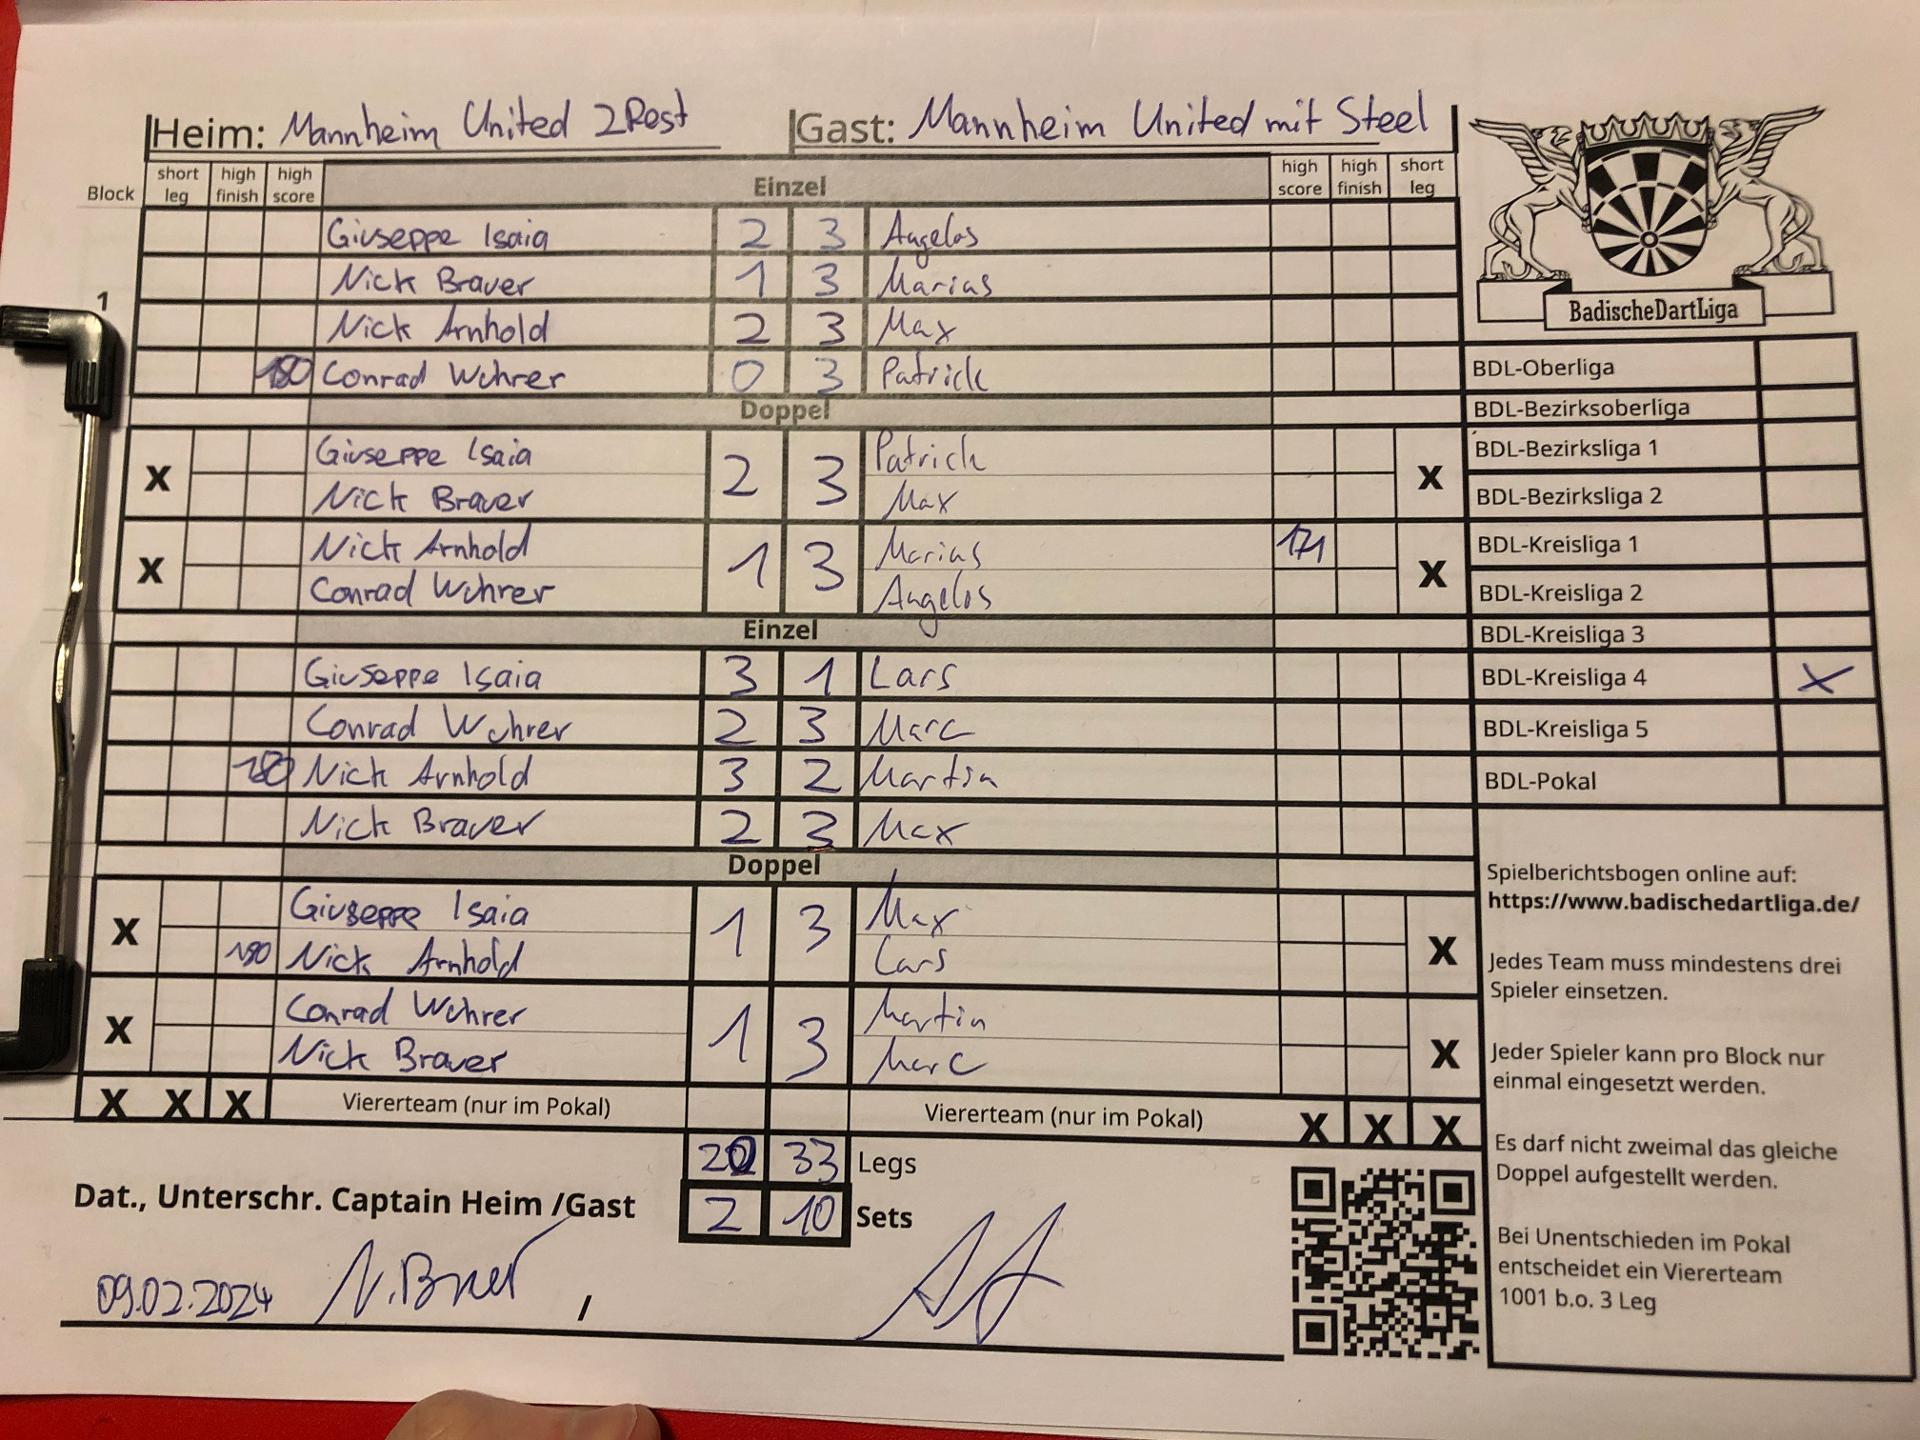 Heim: Mannheim United 2Rost Gast: Mannheim United mit Steel
Block short leg high finish high score Einzel high score high finish short leg
Giuseppe Isaia 2 3 Angelos
1 Nick Brauer 1 3 Marias
Nick Arnhold 2 3 Max
180 Conrad Wührer 0 3 Patrick
Doppel
X Giuseppe Isaia 2 3 Patrick X
Nick Brauer Max
X Nick Arnhold 1 3 Marias 171 X
Conrad Wührer Angelos
Einzel
Giuseppe Isaia 3 1 Lars
Conrad Wührer 2 3 Marc
180 Nick Arnhold 3 2 Martin
Nick Brauer 2 3 Max
Doppel
X Giuseppe Isaia 1 3 Max X
180 Nick Arnhold Lars
X Conrad Wührer 1 3 Martin X
Nick Brauer Marc
X X X Viererteam (nur im Pokal) Viererteam (nur im Pokal) X X X
20 33 Legs
Dat., Unterschr. Captain Heim /Gast 2 10 Sets
09.02.2024 N. Brauer /
BadischeDartLiga
BDL-Oberliga
BDL-Bezirksoberliga
BDL-Bezirksliga 1
BDL-Bezirksliga 2
BDL-Kreisliga 1
BDL-Kreisliga 2
BDL-Kreisliga 3
BDL-Kreisliga 4 X
BDL-Kreisliga 5
BDL-Pokal
Spielberichtsbogen online auf:
https://www.badischedartliga.de/
Jedes Team muss mindestens drei
Spieler einsetzen.
Jeder Spieler kann pro Block nur
einmal eingesetzt werden.
Es darf nicht zweimal das gleiche
Doppel aufgestellt werden.
Bei Unentschieden im Pokal
entscheidet ein Viererteam
1001 b.o. 3 Leg